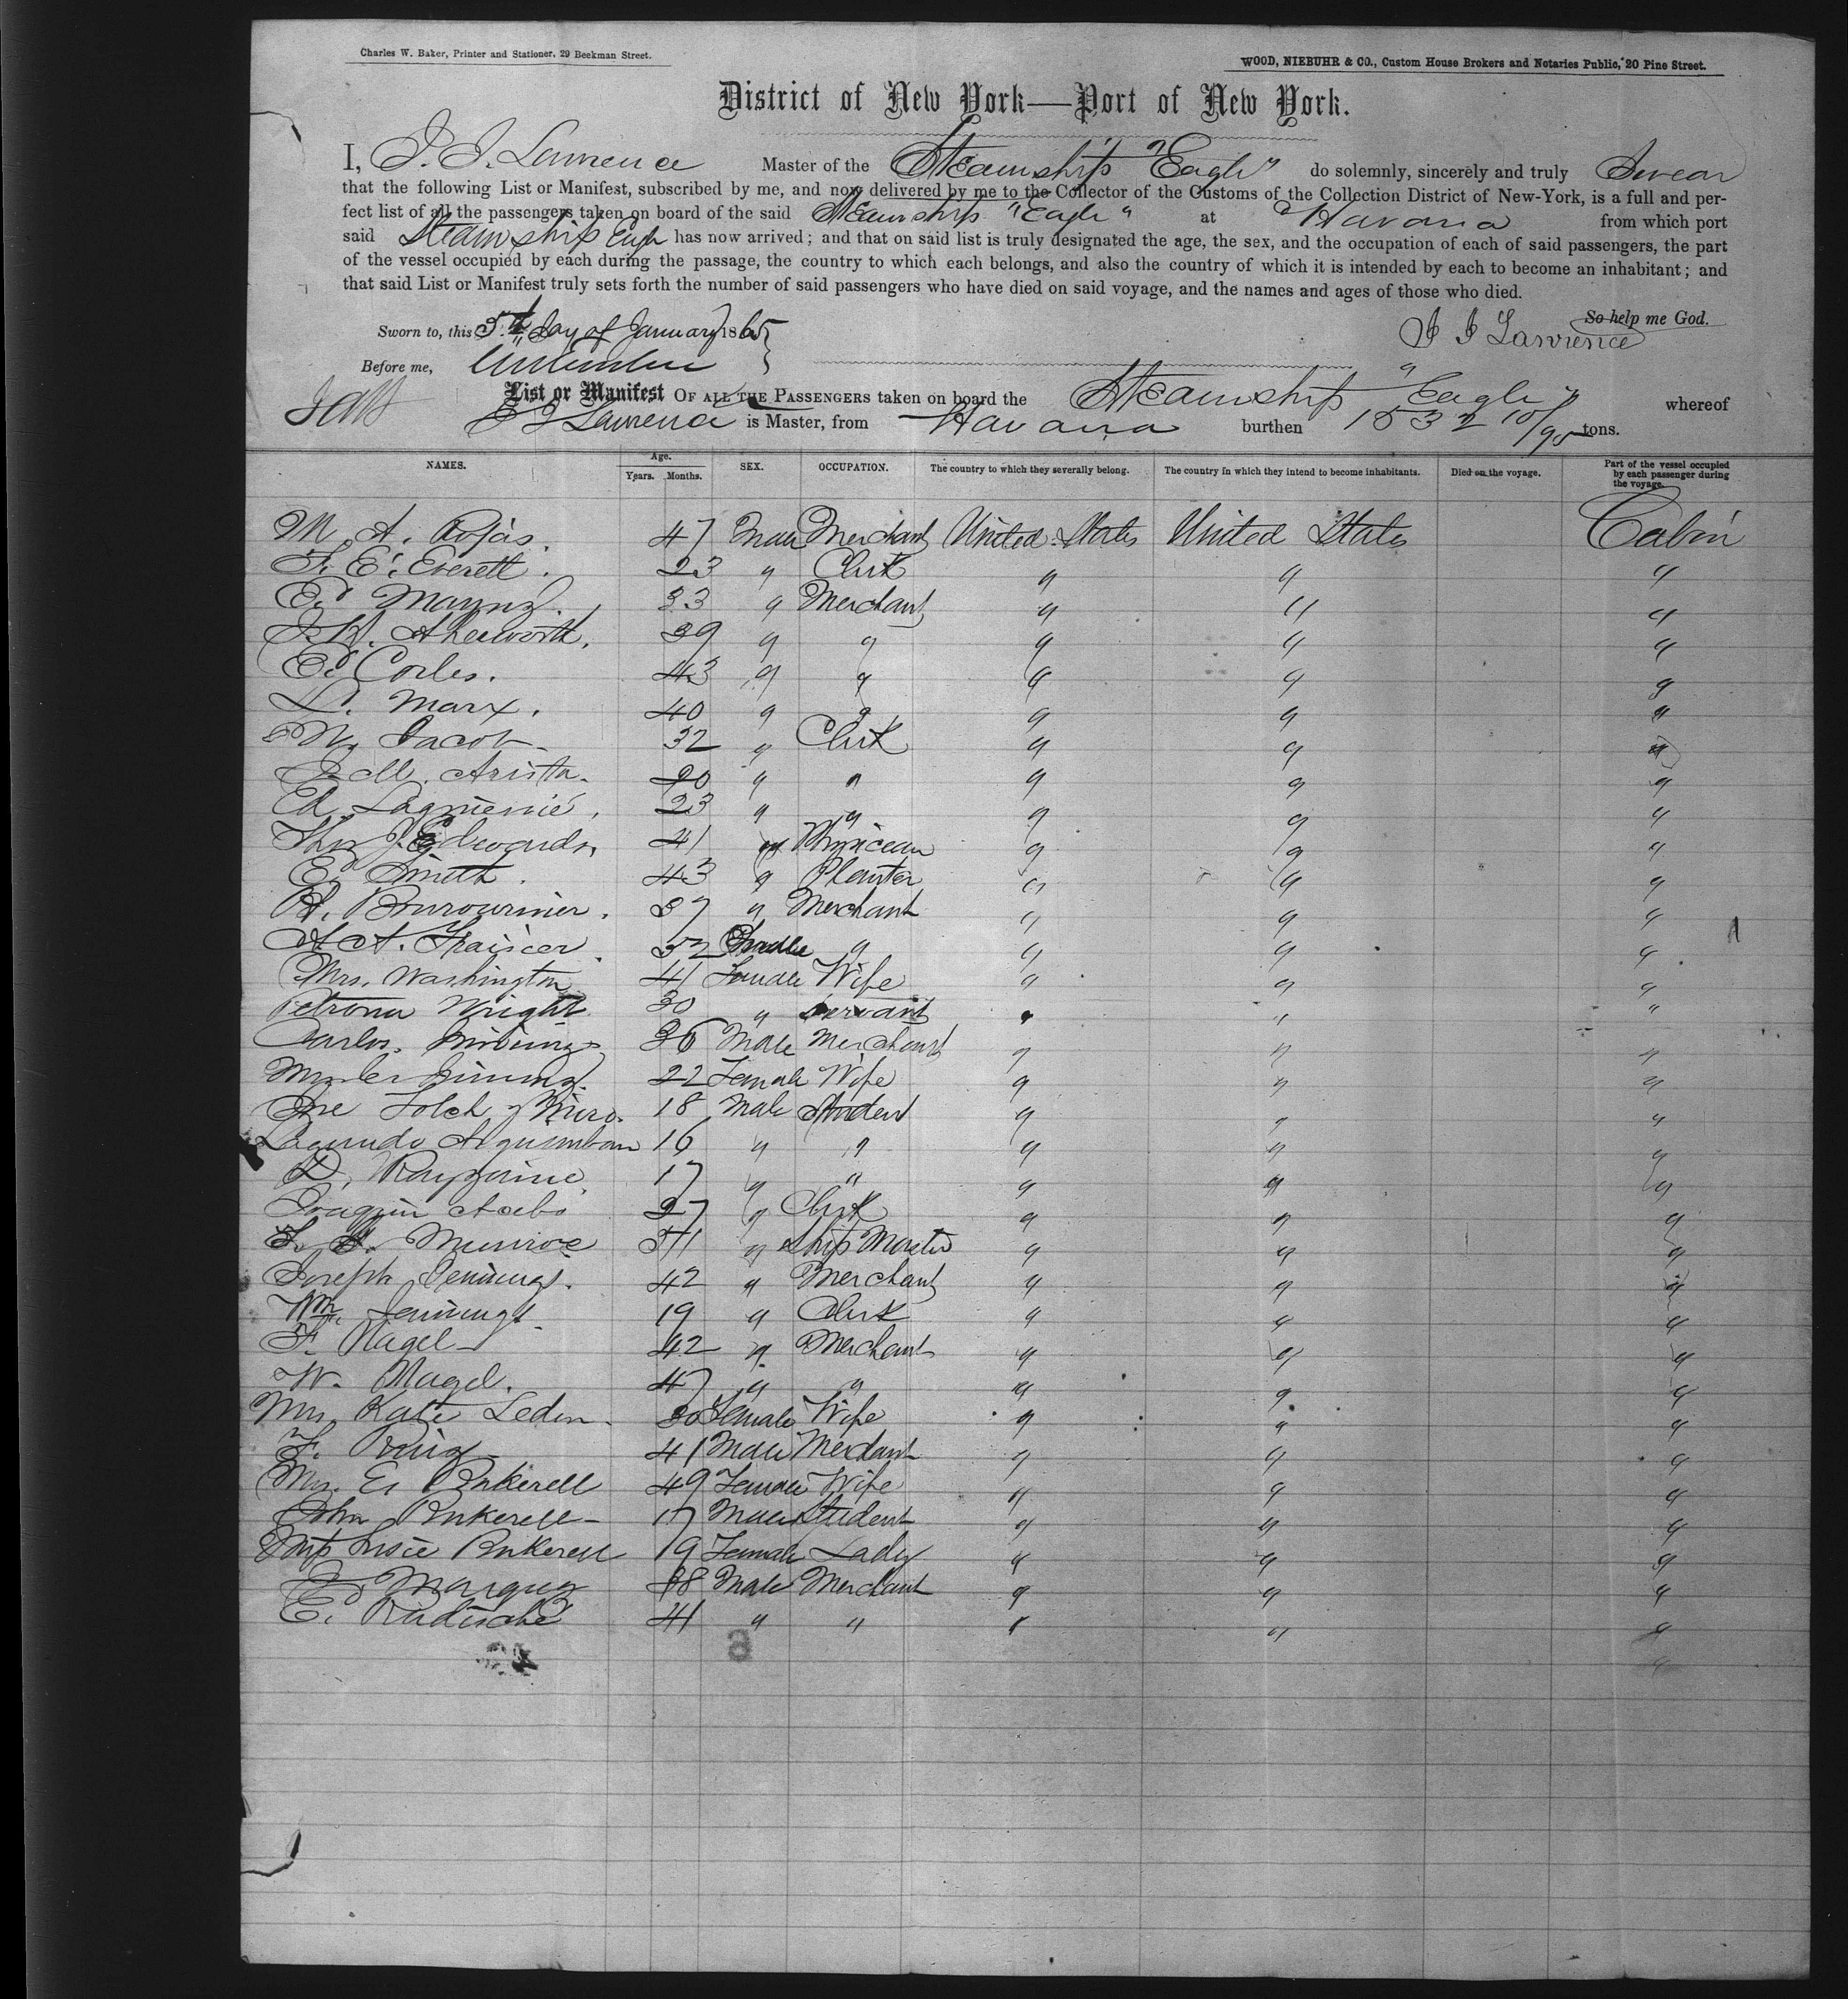 Charles W. Baker, Printer and Stationer, 29 Beekman Street.
WOOD, NIEBUHR & CO., Custom House Brokers and Notaries Public, 20 Pine Street.
District of New York—Port of New York.
I, J. J. Lawrence Master of the Steamship "Eagle" do solemnly, sincerely and truly Swear
that the following List or Manifest, subscribed by me, and now delivered by me to the Collector of the Customs of the Collection District of New-York, is a full and per-
fect list of all the passengers taken on board of the said Steamship "Eagle" at Havana from which port
said Steamship Eagle has now arrived; and that on said list is truly designated the age, the sex, and the occupation of each of said passengers, the part
of the vessel occupied by each during the passage, the country to which each belongs, and also the country of which it is intended by each to become an inhabitant; and
that said List or Manifest truly sets forth the number of said passengers who have died on said voyage, and the names and ages of those who died.
So help me God.
Sworn to, this 5th day of January 1865
J J Lawrence
Before me,
List or Manifest OF ALL THE PASSENGERS taken on board the Steamship "Eagle" whereof
J J Lawrence is Master, from Havana burthen 1532 10/95 tons.
NAMES. Age. Years. Months. SEX. OCCUPATION. The country to which they severally belong. The country in which they intend to become inhabitants. Died on the voyage. Part of the vessel occupied by each passenger during the voyage.
M. A. Rojas. 47 Male Merchant United States United States Cabin
F. E. Everett. 23 " Clerk " " "
Ed 33 " Merchant " " "
J. W. 39 " " " " "
Ed Corles. 43 " " " " "
L. Marx. 40 " " " " "
M. Jacob 32 " Clerk " " "
J. M. Arista. 20 " " " " "
Ed. 23 " " " " "
Thos J. Edwards 41 " Physician " " "
E. Smith. 43 " Planter " " "
37 " Merchant " " "
A. A. 52 Male " " " "
Mrs. Washington 41 Female Wife " " "
Petrona Wright 30 " Servant " " "
Carlos 36 Male Merchant " " "
22 Female Wife " " "
Jose Folch y 18 Male Student " " "
16 " " " " "
17 " " " " "
Joaquin 27 " Clerk " " "
Munroe 51 " Ship Master " " "
Joseph Jennings. 42 " Merchant " " "
Wm Jennings 19 " Clerk " " "
F. Nagel 42 " Merchant " " "
W. Nagel. 47 " " " " "
Mrs Kate Leden 30 Female Wife " " "
F. Ruiz 41 Male Merchant " " "
Mrs. E. Pinkerell 49 Female Wife " " "
John Pinkerell 17 Male Student " " "
Miss Susie Pinkerell 19 Female Lady " " "
38 Male Merchant " " "
E. 41 " " " " "